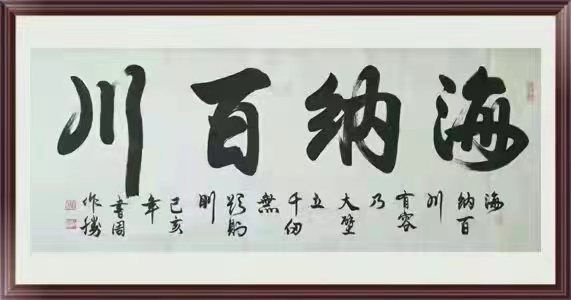 海纳百川
海纳百川有容乃大壁立千仞無欲則刚己亥年書周作勝